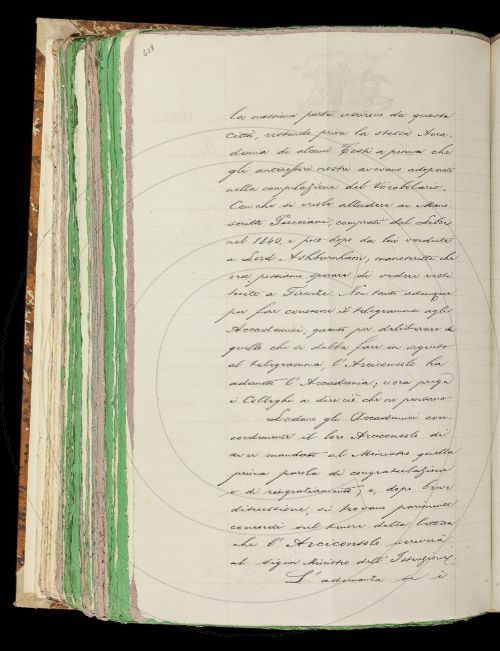 628
la massima parte uscirono da questa
città, restando priva la stessa Acca-
demia di alcuni Testi a penna che
gli antecessori nostri avevano adoprati
nella compilazione del Vocabolario.
Con che si vuole alludere ai Mano-
scritti Pucciani, comprati dal Libri
nel 1840, e poco dopo da lui venduti
a Lord Ashburnham; manoscritti che
ora possiamo sperare di vedere resti-
tuiti a Firenze. Non tanto adunque
per far conoscere il telegramma agli
Accademici, quanto per deliberare su
quello che si debba fare in seguito
al telegramma, l'Arciconsolo ha
adunato l'Accademia; e ora prega
i Colleghi a dire ciò che ne pensano.
Lodano gli Accademici con-
cordemente il loro Arciconsolo di
aver mandato al Ministro quella
prima parola di congratulazione
e di ringraziamento; e, dopo breve
discussione, si trovano parimente
concordi sul tenore della lettera
che l'Arciconsolo scriverà
al signor Ministro dell'Istruzione.
L'adunanza si è